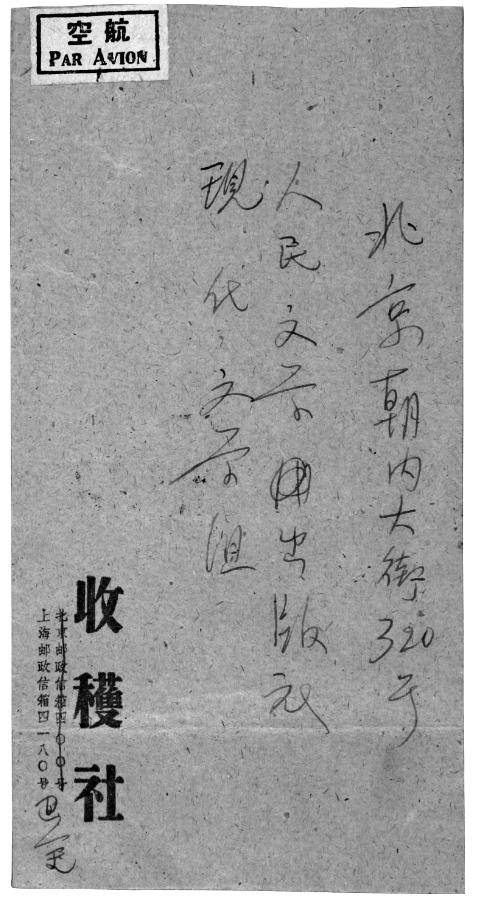 航空
PAR AVION
北京朝内大街320号
人民文学出版社
现代文学组
收穫社
北京邮政信箱四〇〇号
上海邮政信箱四一八〇号
巴金